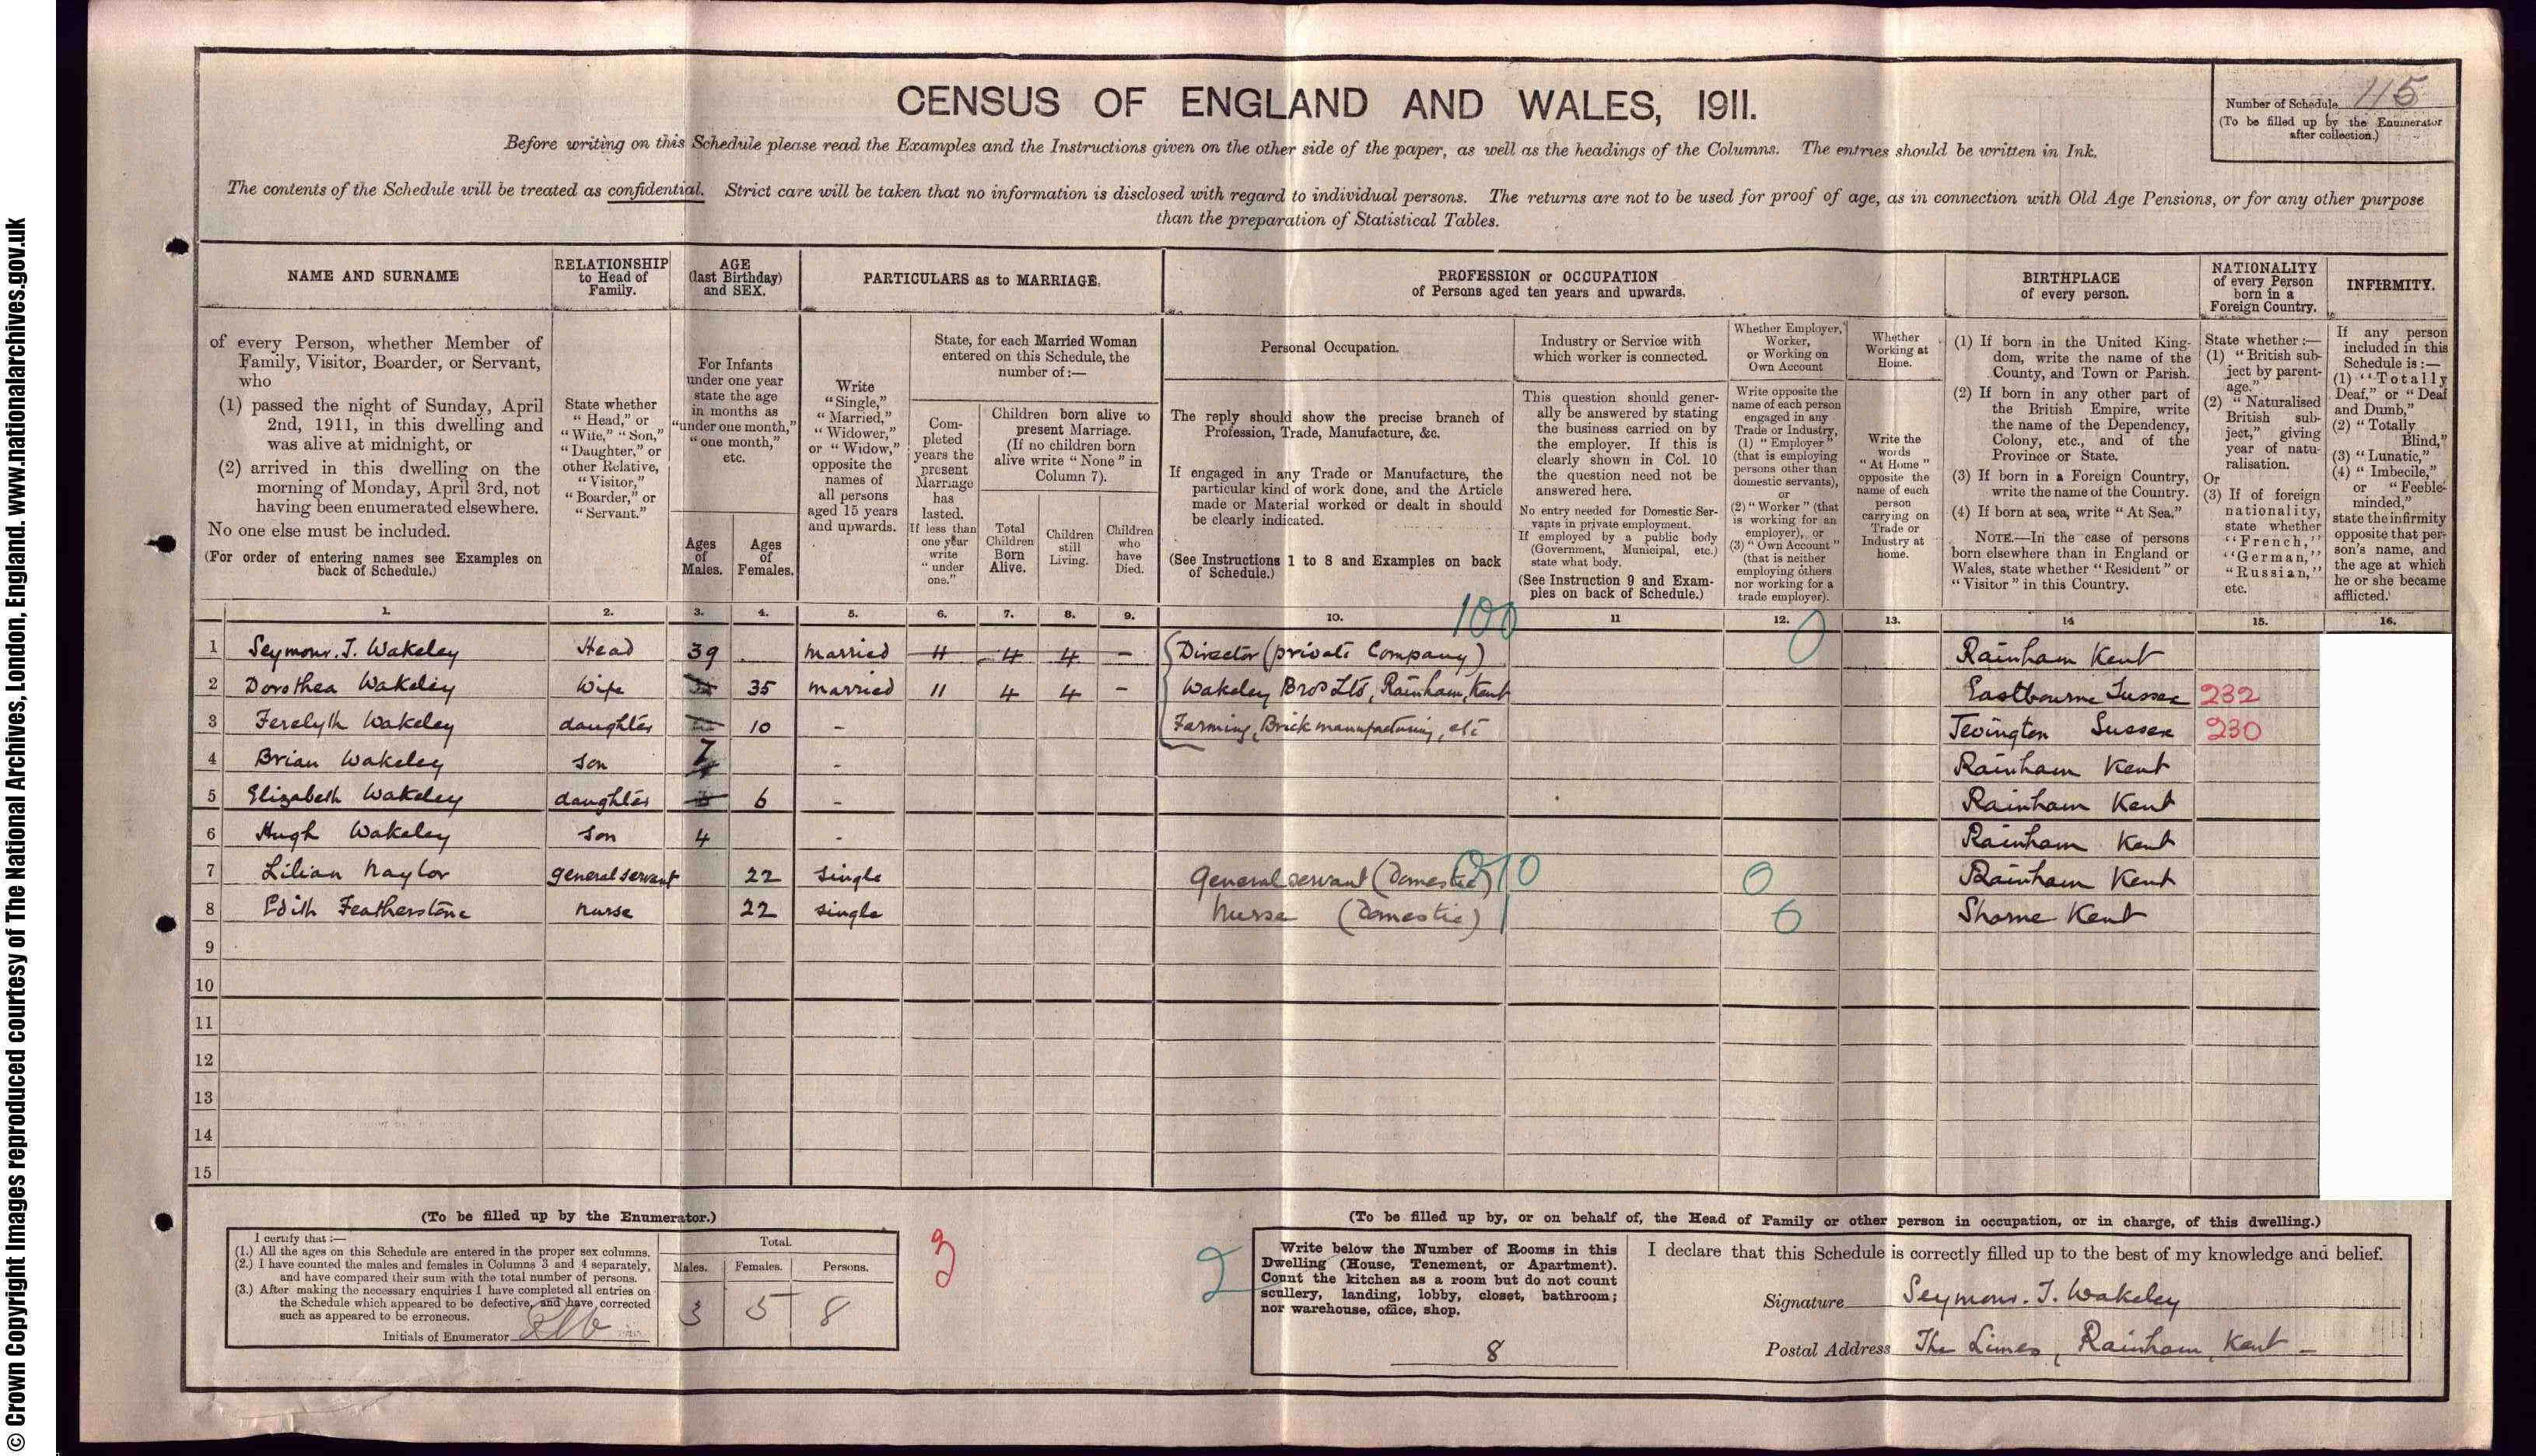 © Crown Copyright Images reproduced courtesy of The National Archives, London, England. www.nationalarchives.gov.uk
CENSUS OF ENGLAND AND WALES, 1911.
Number of Schedule 45
(To be filled up by the Enumerator after collection.)
Before writing on this Schedule please read the Examples and the Instructions given on the other side of the paper, as well as the headings of the Columns. The entries should be written in Ink.
The contents of the Schedule will be treated as confidential. Strict care will be taken that no information is disclosed with regard to individual persons. The returns are not to be used for proof of age, as in connection with Old Age Pensions, or for any other purpose
than the preparation of Statistical Tables.
NAME AND SURNAME
RELATIONSHIP to Head of Family.
AGE (last Birthday) and SEX.
PARTICULARS as to MARRIAGE.
PROFESSION or OCCUPATION of Persons aged ten years and upwards.
BIRTHPLACE of every person.
NATIONALITY of every Person born in a Foreign Country.
INFIRMITY.
of every Person, whether Member of Family, Visitor, Boarder, or Servant, who
(1) passed the night of Sunday, April 2nd, 1911, in this dwelling and was alive at midnight, or
(2) arrived in this dwelling on the morning of Monday, April 3rd, not having been enumerated elsewhere.
No one else must be included.
(For order of entering names see Examples on back of Schedule.)
State whether "Head," or "Wife," "Son," "Daughter," or other Relative, "Visitor," "Boarder," or "Servant."
For Infants under one year state the age in months as "under one month," "one month," etc.
Ages of Males.
Ages of Females.
Write "Single," "Married," "Widower," or "Widow," opposite the names of all persons aged 15 years and upwards.
State, for each Married Woman entered on this Schedule, the number of:—
Completed years the present Marriage has lasted. If less than one year write "under one."
Children born alive to present Marriage. (If no children born alive write "None" in Column 7).
Total Children Born Alive.
Children still Living.
Children who have Died.
Personal Occupation.
The reply should show the precise branch of Profession, Trade, Manufacture, &c.
If engaged in any Trade or Manufacture, the particular kind of work done, and the Article made or Material worked or dealt in should be clearly indicated.
(See Instructions 1 to 8 and Examples on back of Schedule.)
Industry or Service with which worker is connected.
This question should generally be answered by stating the business carried on by the employer. If this is clearly shown in Col. 10 the question need not be answered here.
No entry needed for Domestic Servants in private employment. If employed by a public body (Government, Municipal, etc.) state what body.
(See Instruction 9 and Examples on back of Schedule.)
Whether Employer, Worker, or Working on Own Account
Write opposite the name of each person engaged in any Trade or Industry, (1) "Employer" (that is employing persons other than domestic servants), or (2) "Worker" (that is working for an employer), or (3) "Own Account" (that is neither employing others nor working for a trade employer).
Whether Working at Home.
Write the words "At Home" opposite the name of each person carrying on Trade or Industry at home.
(1) If born in the United Kingdom, write the name of the County, and Town or Parish.
(2) If born in any other part of the British Empire, write the name of the Dependency, Colony, etc., and of the Province or State.
(3) If born in a Foreign Country, write the name of the Country.
(4) If born at sea, write "At Sea."
NOTE.—In the case of persons born elsewhere than in England or Wales, state whether "Resident" or "Visitor" in this Country.
State whether:—
(1) "British subject by parentage."
(2) "Naturalised British subject," giving year of naturalisation.
Or
(3) If of foreign nationality, state whether "French," "German," "Russian," etc.
If any person included in this Schedule is:—
(1) "Totally Deaf," or "Deaf and Dumb,"
(2) "Totally Blind,"
(3) "Lunatic,"
(4) "Imbecile," or "Feeble-minded,"
state the infirmity opposite that person's name, and the age at which he or she became afflicted.
1. 2. 3. 4. 5. 6. 7. 8. 9. 10. 11 12. 13. 14 15. 16.
100
1 Seymour. J. Wakeley Head 39 Married 11 4 4 – Director (private Company) 0 Rainham Kent
2 Dorothea Wakeley Wife 35 Married 11 4 4 – Wakeley Bros Ltd, Rainham, Kent Eastbourne Sussex 232
3 Ferelyth Wakeley daughter 10 – Farming, Brick manufacturing, etc Jevington Sussex 230
4 Brian Wakeley Son 7 – Rainham Kent
5 Elizabeth Wakeley daughter 6 – Rainham Kent
6 Hugh Wakeley Son 4 - Rainham Kent
7 Lilian Naylor general servant 22 single General servant (Domestic) 0 Rainham Kent
8 Edith Featherstone nurse 22 single Nurse (Domestic) 0 Shorne Kent
9
10
11
12
13
14
15
(To be filled up by the Enumerator.)
I certify that:—
(1.) All the ages on this Schedule are entered in the proper sex columns.
(2.) I have counted the males and females in Columns 3 and 4 separately, and have compared their sum with the total number of persons.
(3.) After making the necessary enquiries I have completed all entries on the Schedule which appeared to be defective, and have corrected such as appeared to be erroneous.
Initials of Enumerator
Total.
Males. Females. Persons.
3 5 8
3
2
(To be filled up by, or on behalf of, the Head of Family or other person in occupation, or in charge, of this dwelling.)
Write below the Number of Rooms in this Dwelling (House, Tenement, or Apartment). Count the kitchen as a room but do not count scullery, landing, lobby, closet, bathroom; nor warehouse, office, shop.
8
I declare that this Schedule is correctly filled up to the best of my knowledge and belief.
Signature Seymour. J. Wakeley
Postal Address The Limes, Rainham, Kent –